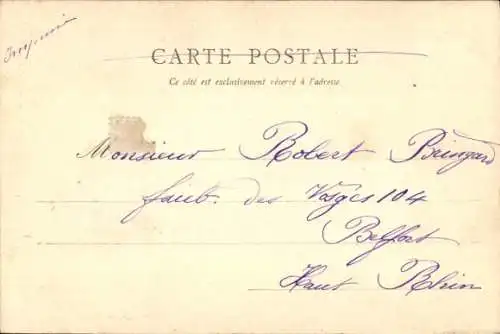 Imprimé
CARTE POSTALE
Ce côté est exclusivement réservé à l'adresse
Monsieur Robert Bringard
faub. des Vosges 104
Belfort
Haut Rhin